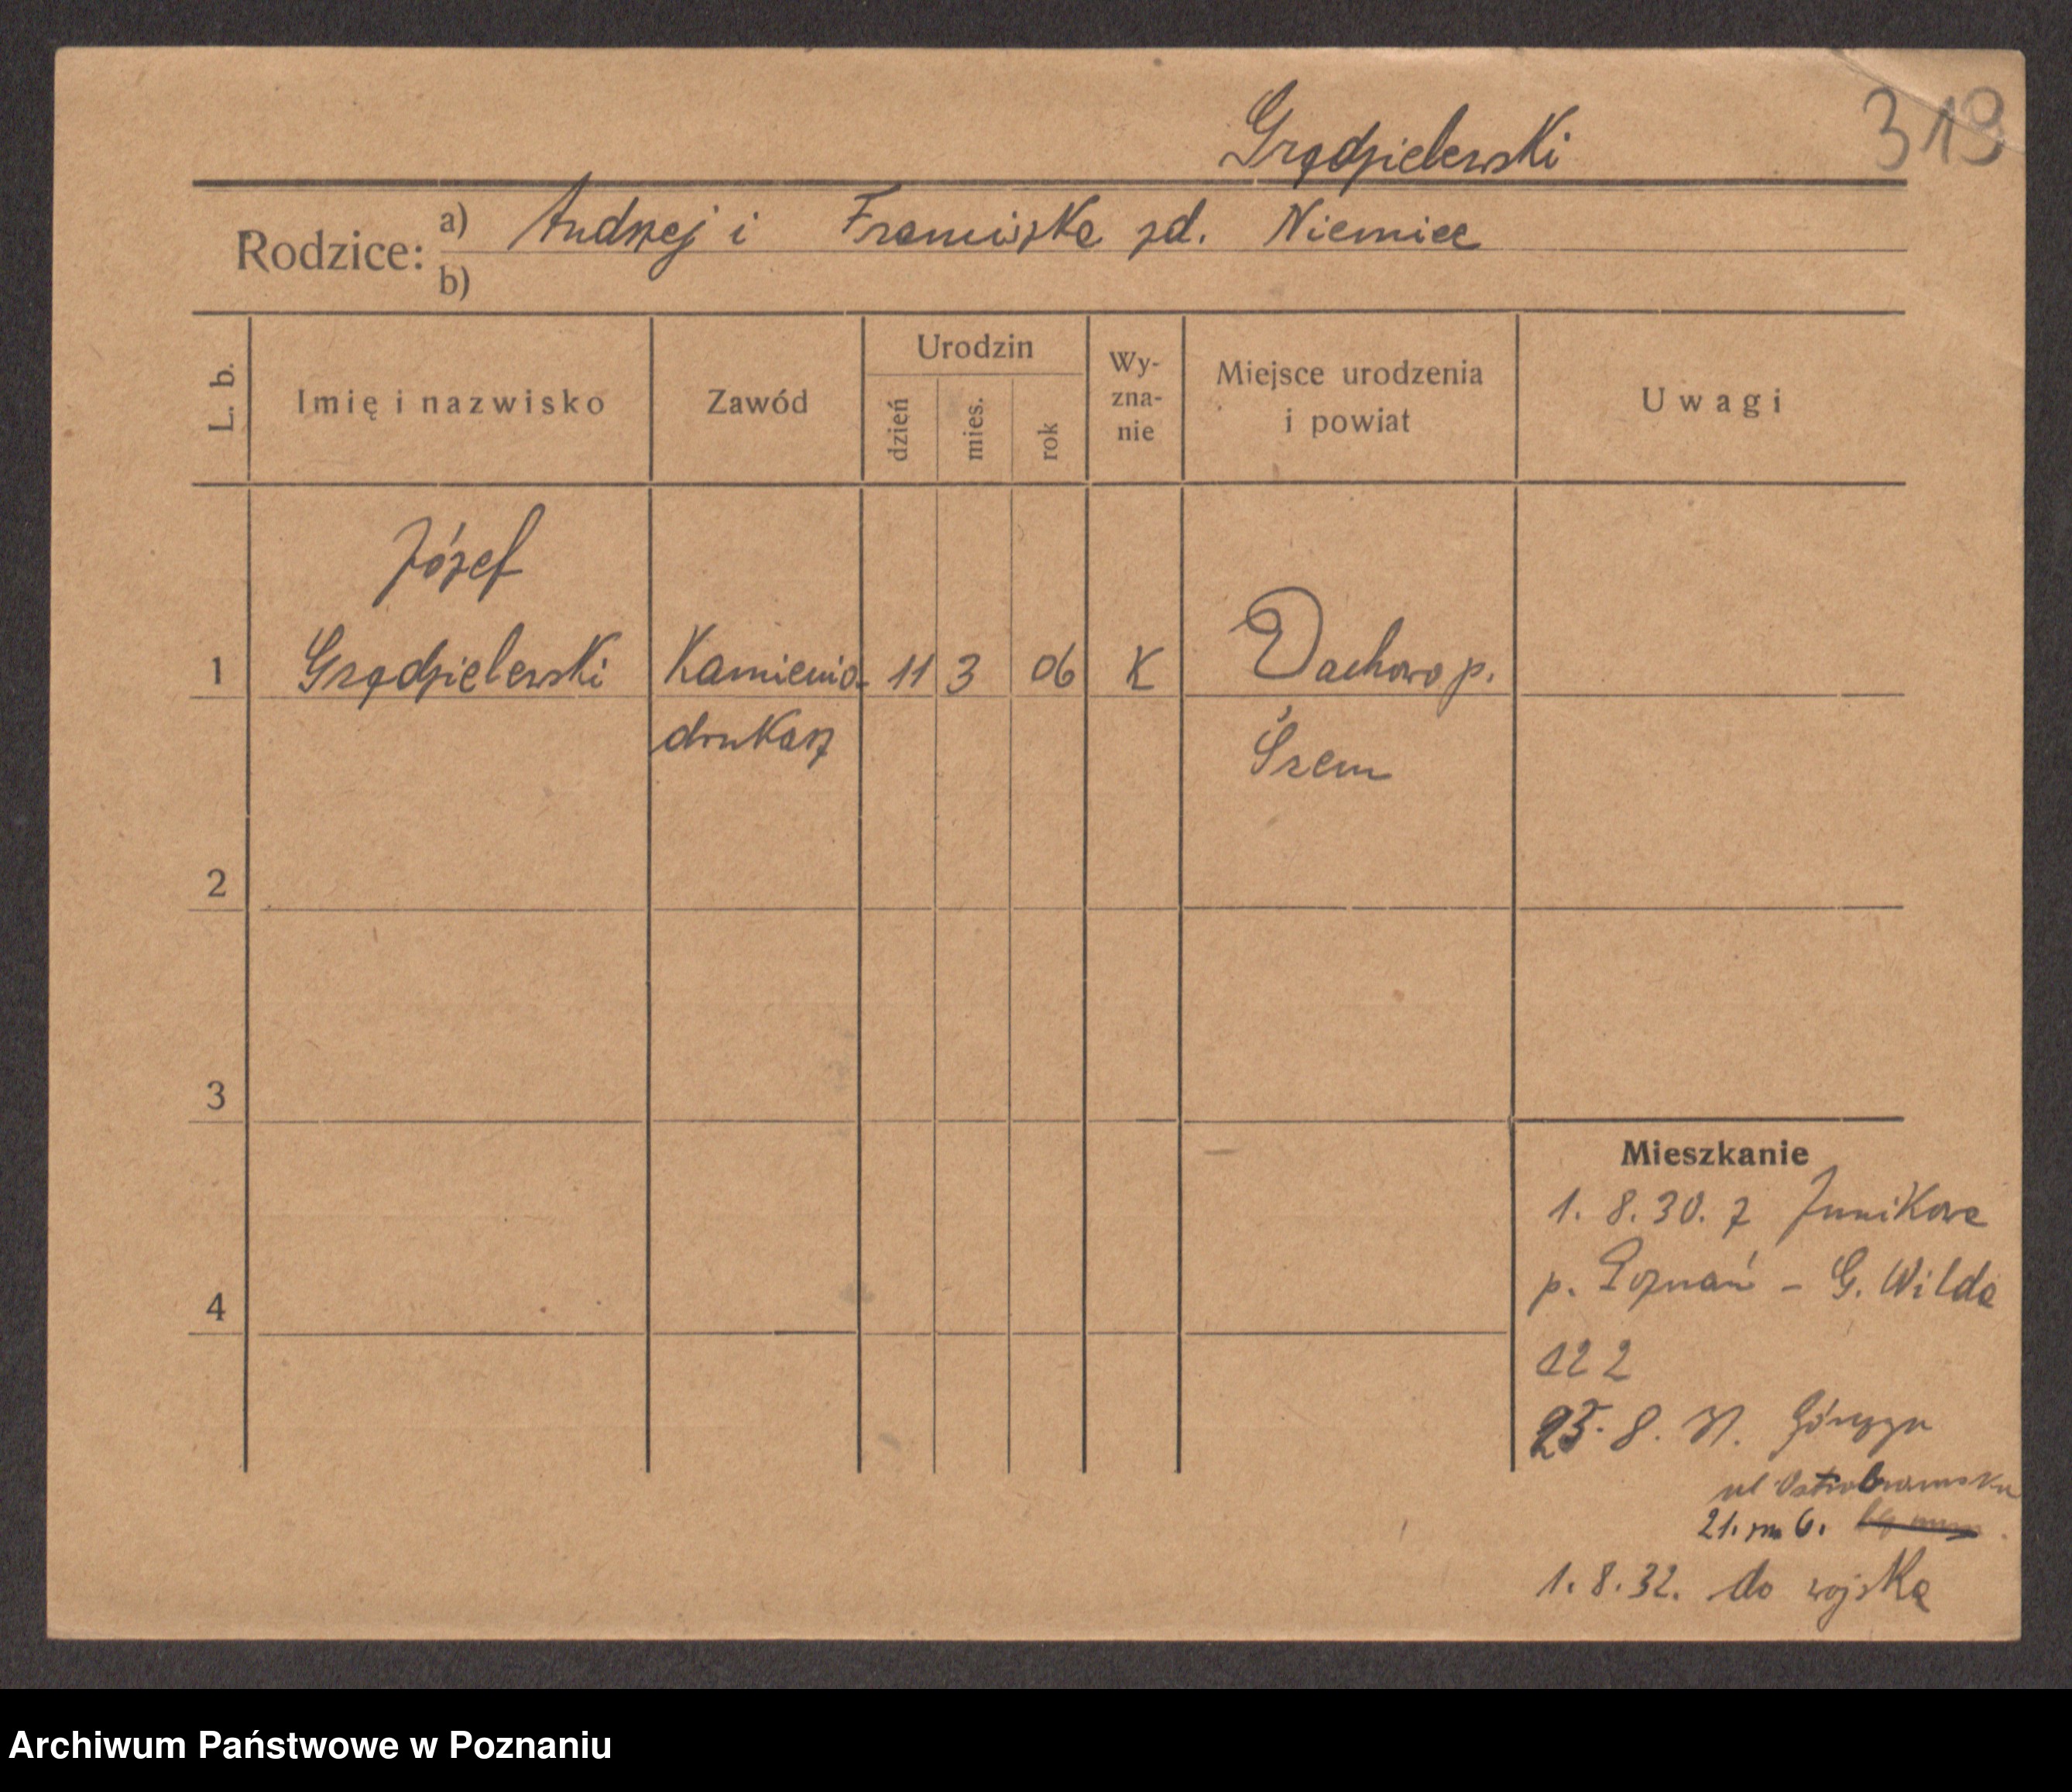 Grądzielewski
319
Rodzice: a) Andrzej i Franciszka zd. Niemiec
b)
L. b.
Imię i nazwisko
Zawód
Urodzin
dzień
mies.
rok
Wy-
zna-
nie
Miejsce urodzenia
i powiat
Uwagi
Józef
1 Grądzielewski Kamienio- 11 3 06 K Dachowo p.
drukarz Śrem
2
3
4
Mieszkanie
1. 8. 30. z Junikowa
p. Poznań - G. Wilda
122
25. 8. 31. Górczyn
ul Ostrobramska
21. m 6.
1. 8. 32. do wojska
Archiwum Państwowe w Poznaniu